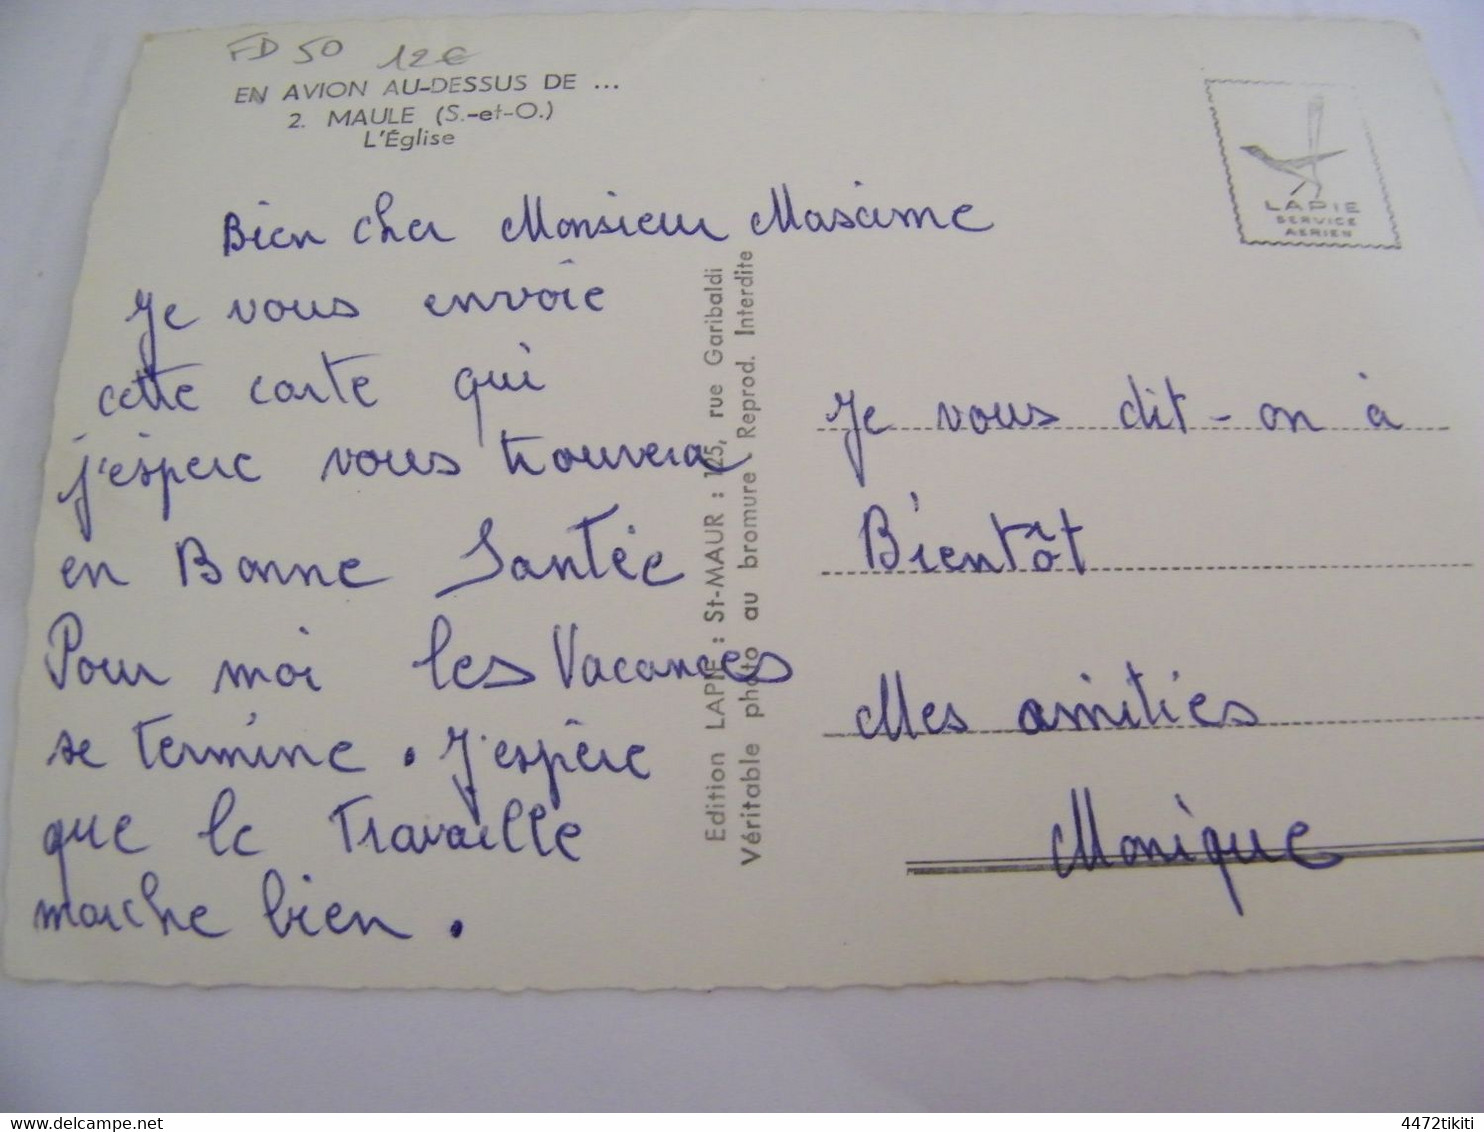 FD 50 12€
EN AVION AU-DESSUS DE ...
2. MAULE (S.-et-O.)
L'Église
LAPIE
SERVICE
AERIEN
Bien cher Monsieur Maxime
Je vous envoie
cette carte qui
j'espere vous trouvera
en Bonne Santée
Pour moi les Vacances
se termine. J'espère
que le Travaille
marche bien.
Edition LAPIE : St-MAUR : 125, rue Garibaldi
Véritable photo au bromure - Reprod. Interdite
Je vous dit-on à
Bientôt
Mes amitiés
Monique
delcampe.net
4472tikiti